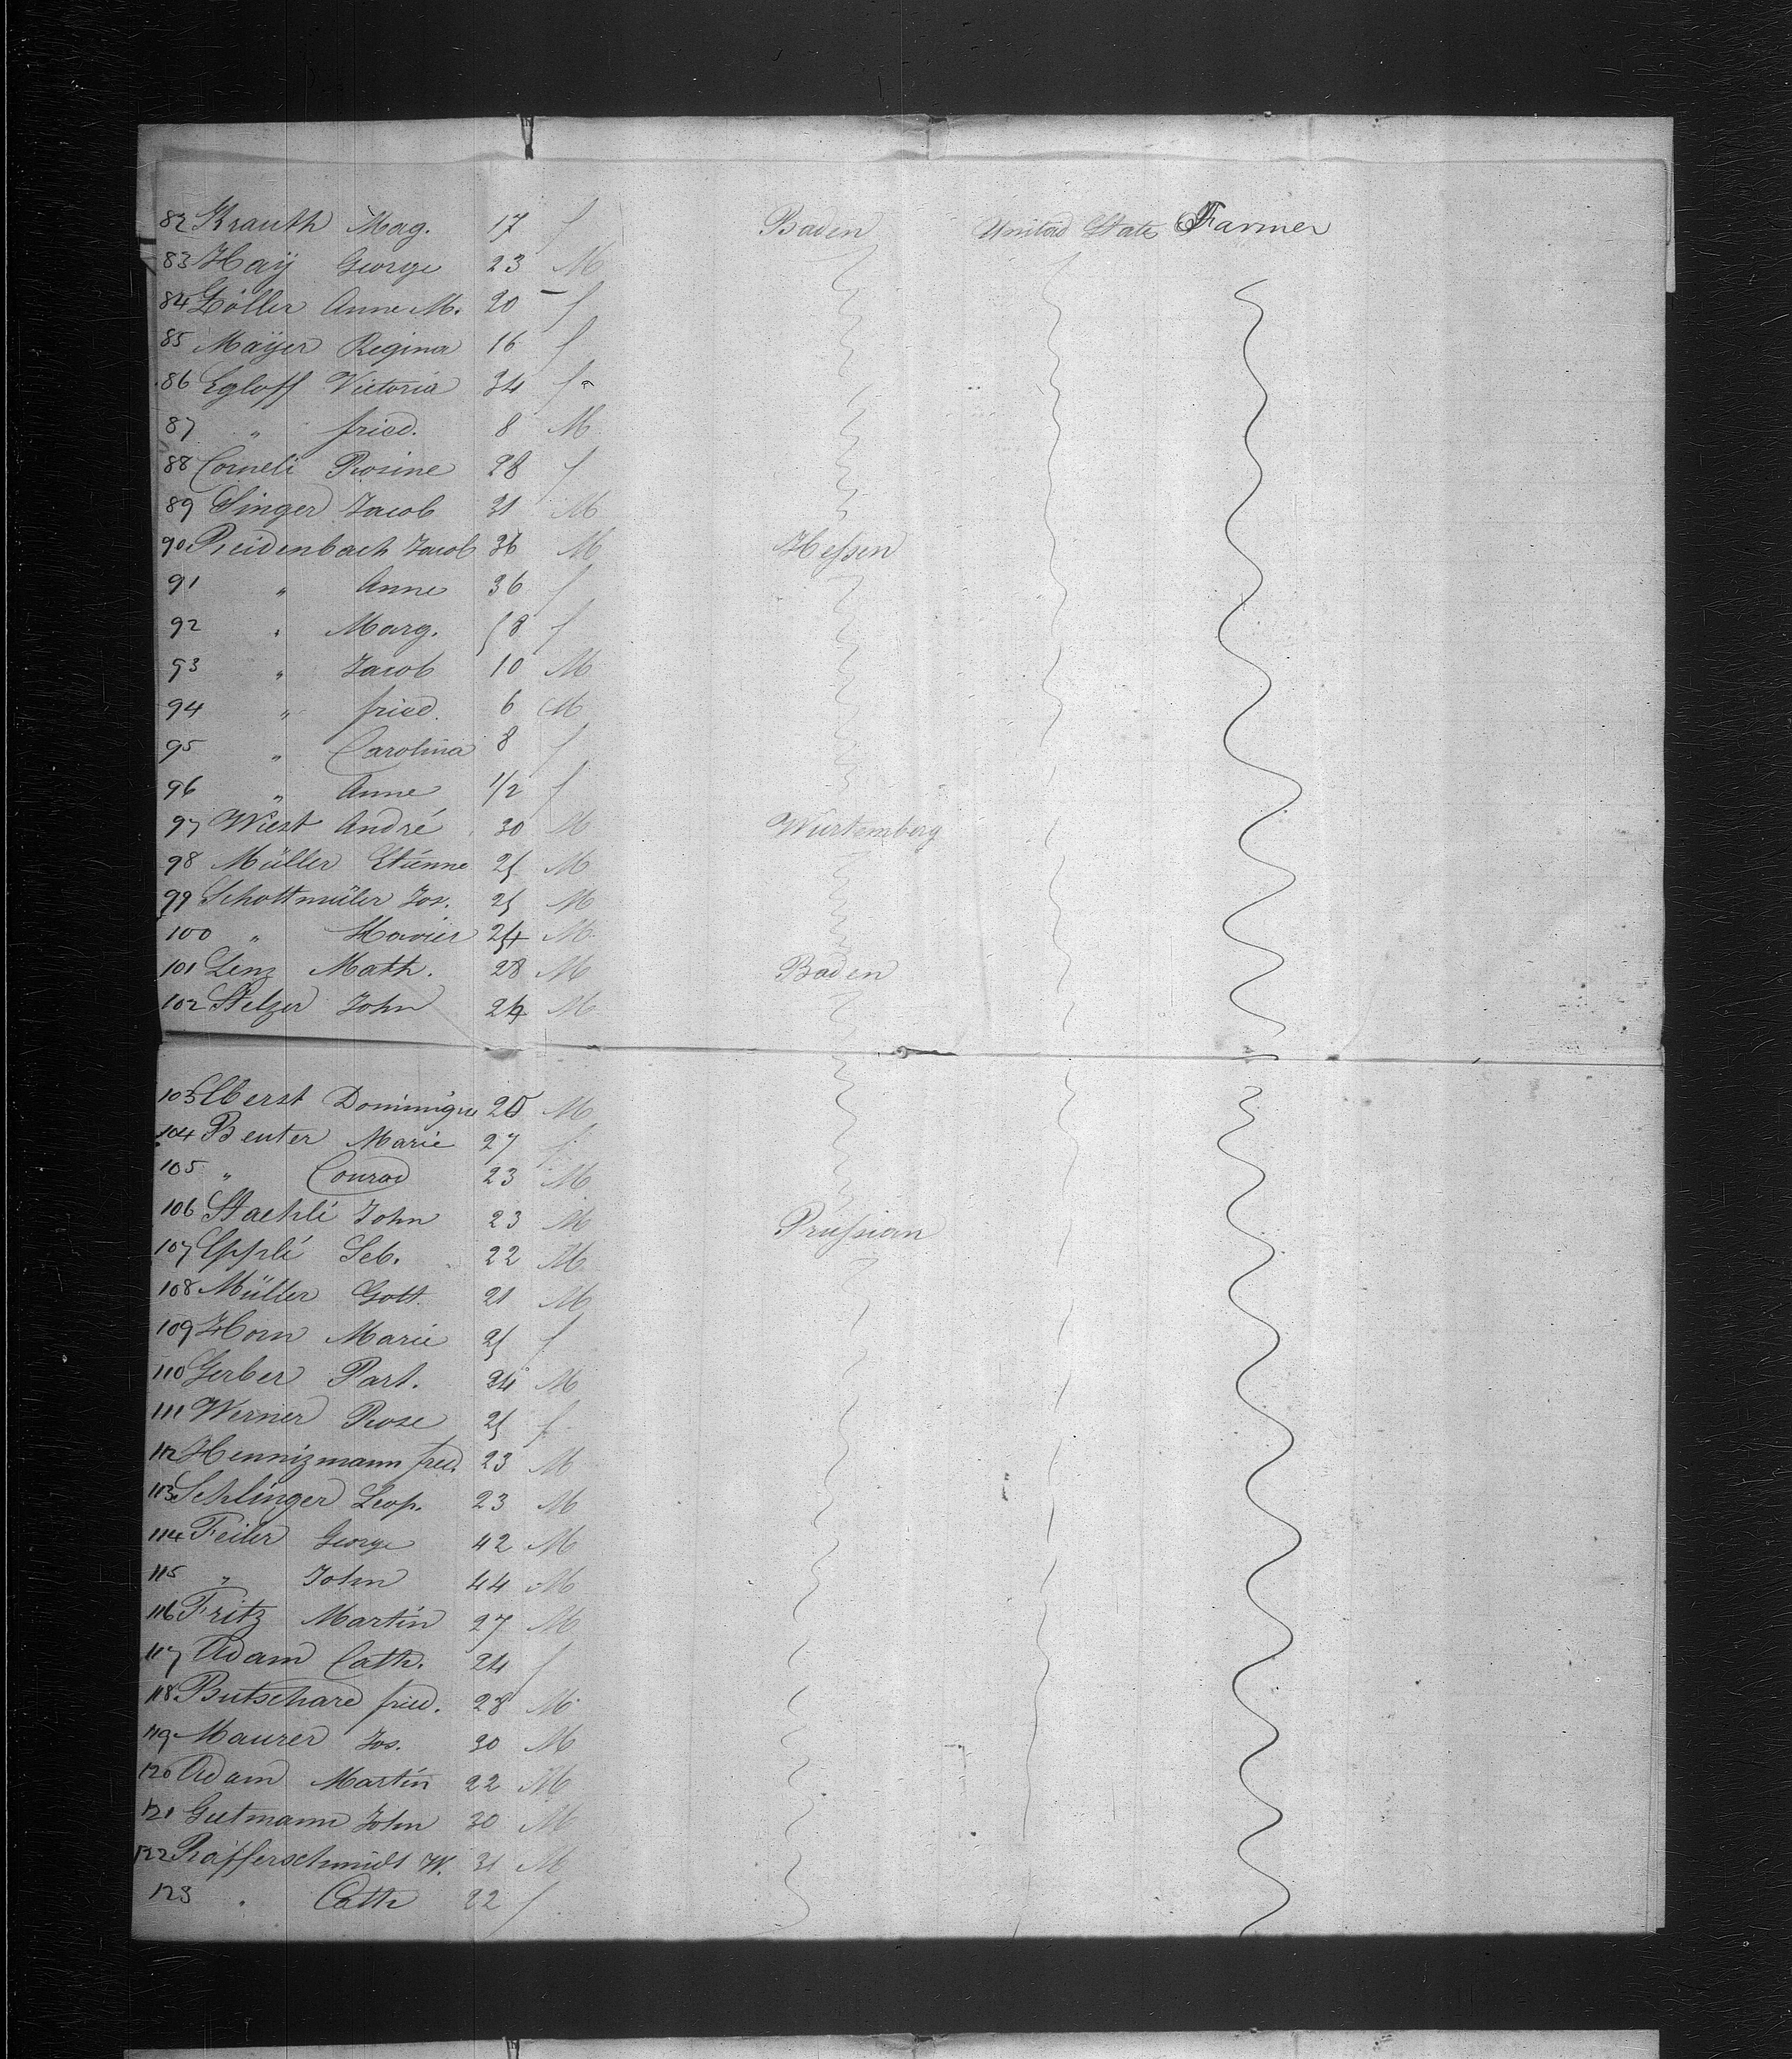 82 Krauth Mag. 17 f Baden United States Farmer
83 Haÿ George 23 M
84 Zöller Anne M. 20 f
85 Maÿer Regina 16 f
86 Egloff Victoria 34 f
87 " fried. 8 M
88 Corneli Rosine 28 f
89 Singer Jacob 31 M
90 Reidenbach Jacob 36 M Hessen
91 " Anne 36 f
92 " Marg. 58 f
93 " Jacob 10 M
94 " fried. 6 M
95 " Carolina 8 f
96 " Anne 1/2 f
97 Wiest André 30 M Wurtemberg
98 Müller Etienne 25 M
99 Schottmüler Jos. 25 M
100 " Xavier 24 M
101 Lenz Math. 28 M Baden
102 Stelzer John 24 M
103 Eberst Dominique 20 M
104 Beuter Marie 27 f
105 " Conrad 23 M
106 Staehli John 23 M Prussian
107 Epplé Seb. 22 M
108 Müller Gott. 21 M
109 Horn Marie 25 f
110 Gerber Part. 34 M
111 Werner Rose 25 f
112 Hennizmann fried. 23 M
113 Schlinger Leop. 23 M
114 Feiler George 42 M
115 " John 44 M
116 Fritz Martin 27 M
117 Adam Cath. 24 f
118 Butschare fried. 28 M
119 Maurer Jos. 30 M
120 Adam Martin 22 M
121 Gutmann John 30 M
122 Rafferschmidt W. 31 M
123 " Cath 22 f